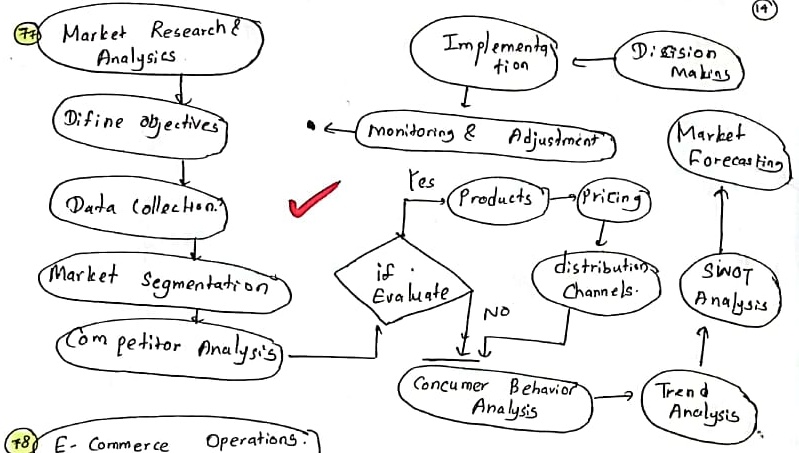 14
77
Market Research &
Analysics
Difine objectives
Data Collection.
Market Segmentation
Competitor Analysis
if
Evaluate
Yes
Products
Pricing
distribution
Channels.
NO
Concumer Behavior
Analysis
Trend
Analysis
SWOT
Analysis
Market
Forecasting
Disision
Making
Implementa
tion
Monitoring & Adjustment
78
E-Commerce Operations.